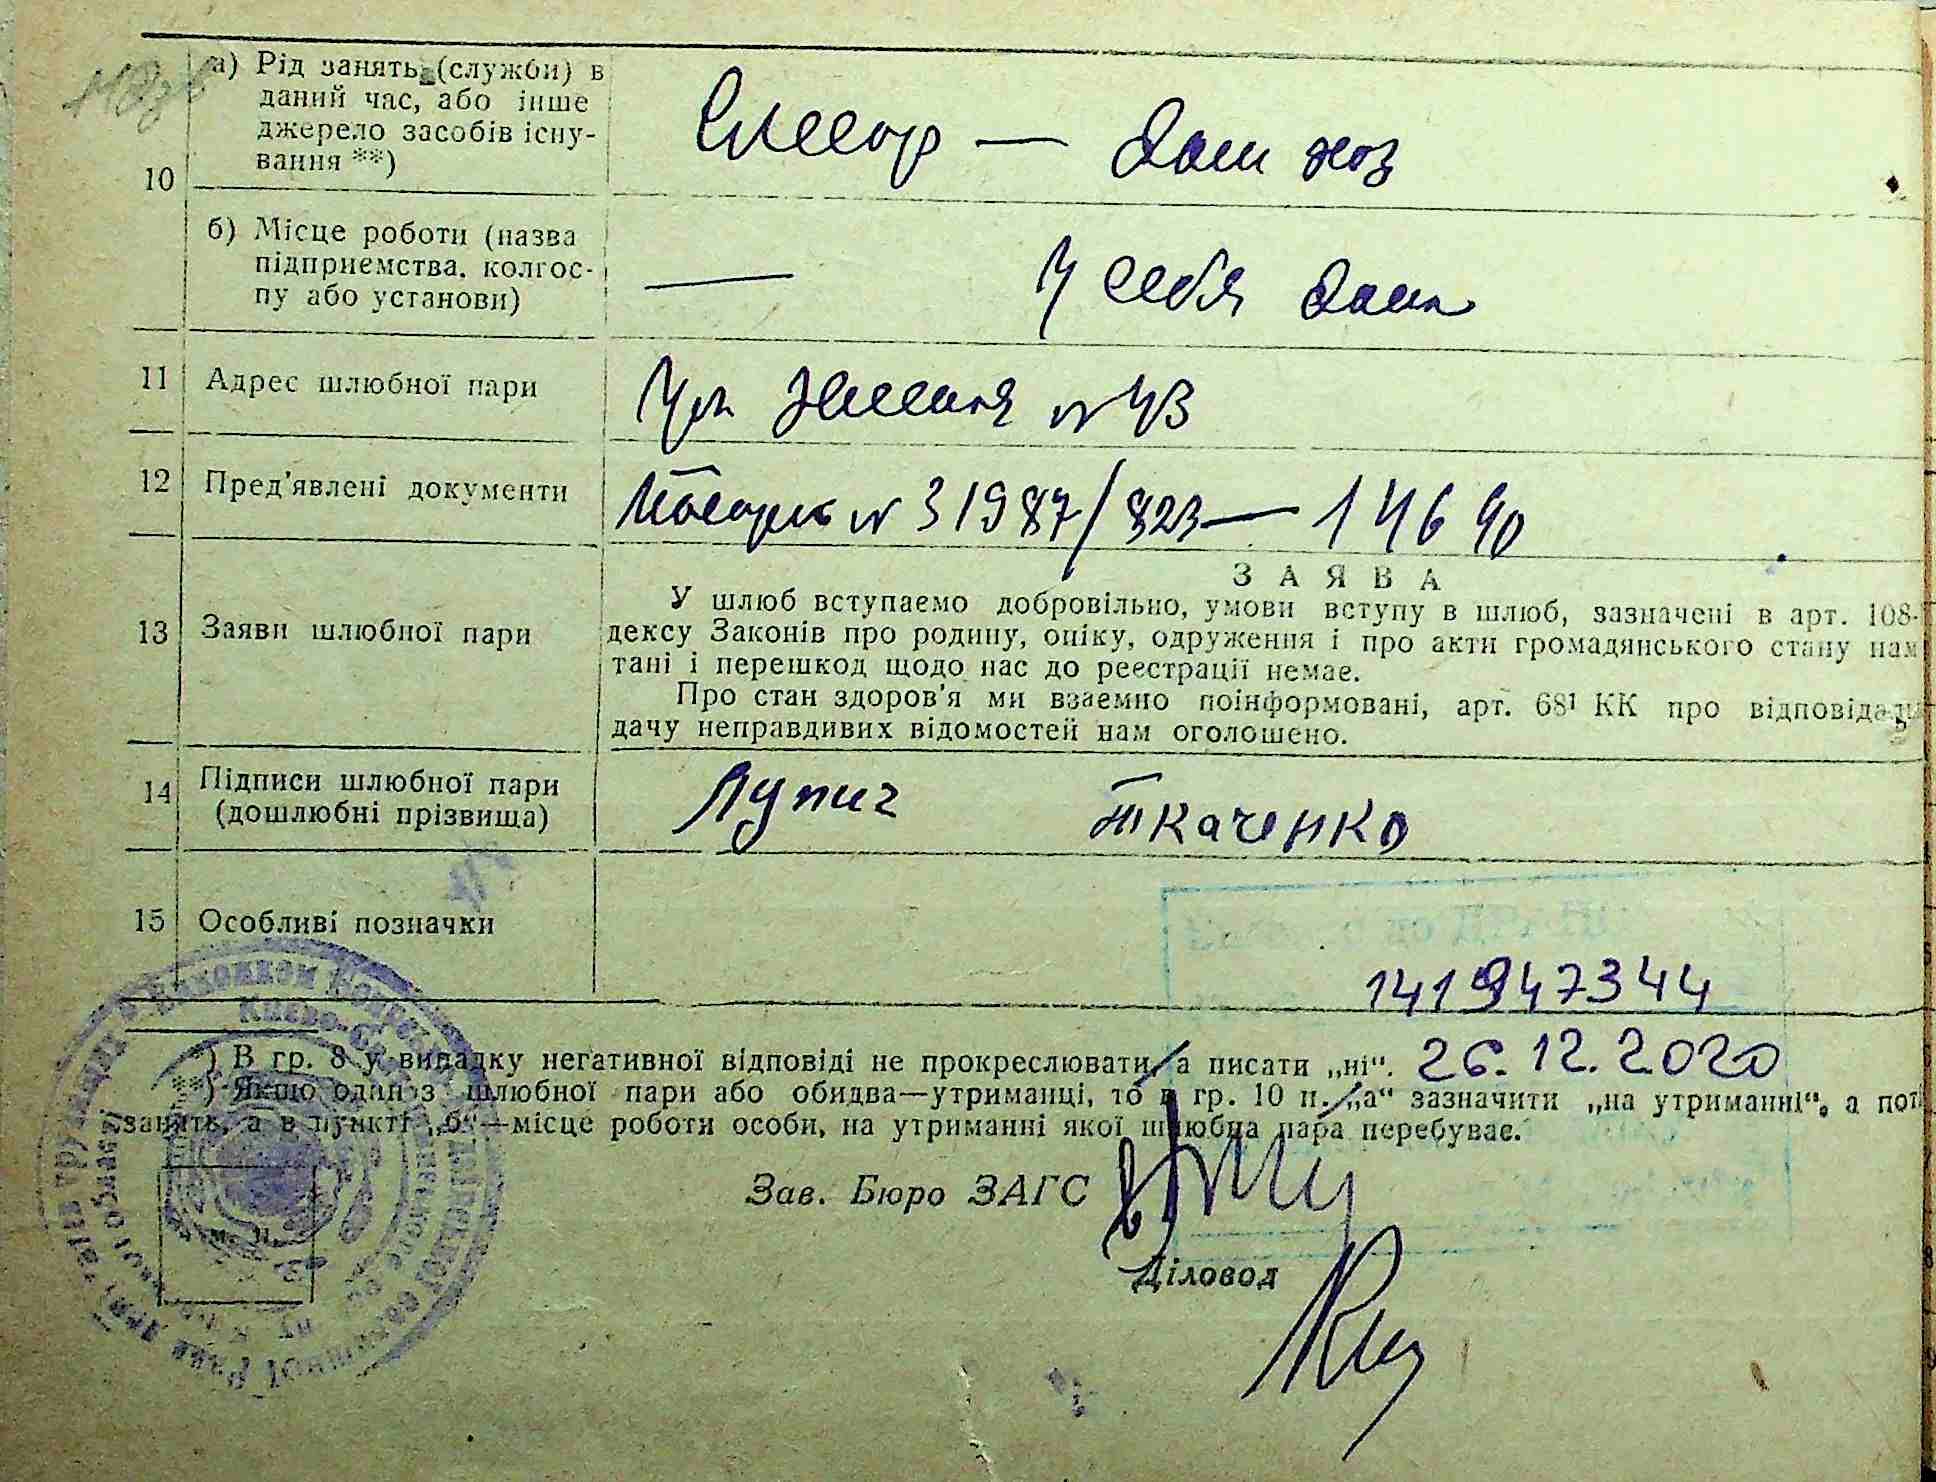 а) Рід занять (службн) в
даний час, або інше
джерело засобів існу-
вання **)
Слесар — дом хоз
10
б) Місце роботи (назва
підприємства, колгос-
пу або установи)
— у себя дома
11 Адрес шлюбної пари
Ул №43
12 Пред'явлені документи
№ 31987/823 — 14690
ЗАЯВА
13 Заяви шлюбної пари
У шлюб вступаємо добровільно, умови вступу в шлюб, зазначені в арт. 108-
дексу Законів про родину, опіку, одруження і про акти громадянського стану нам
тані і перешкод щодо нас до реєстрації немає.
Про стан здоров'я ми взаємно поінформовані, арт. 68¹ КК про відповідаль
дачу неправдивих відомостей нам оголошено.
14 Підписи шлюбної пари
(дошлюбні прізвища)
Лупич Ткаченко
15 Особливі позначки
141947344
*) В гр. 8 у випадку негативної відповіді не прокреслювати, а писати „ні“. 26.12.2020
**) Якщо один з шлюбної пари або обидва—утриманці, то в гр. 10 п. „а“ зазначити „на утриманні“, а пот
занять, а в пункті „б“—місце роботи особи, на утриманні якої шлюбна пара перебуває.
Зав. Бюро ЗАГС
м. п.
Діловод